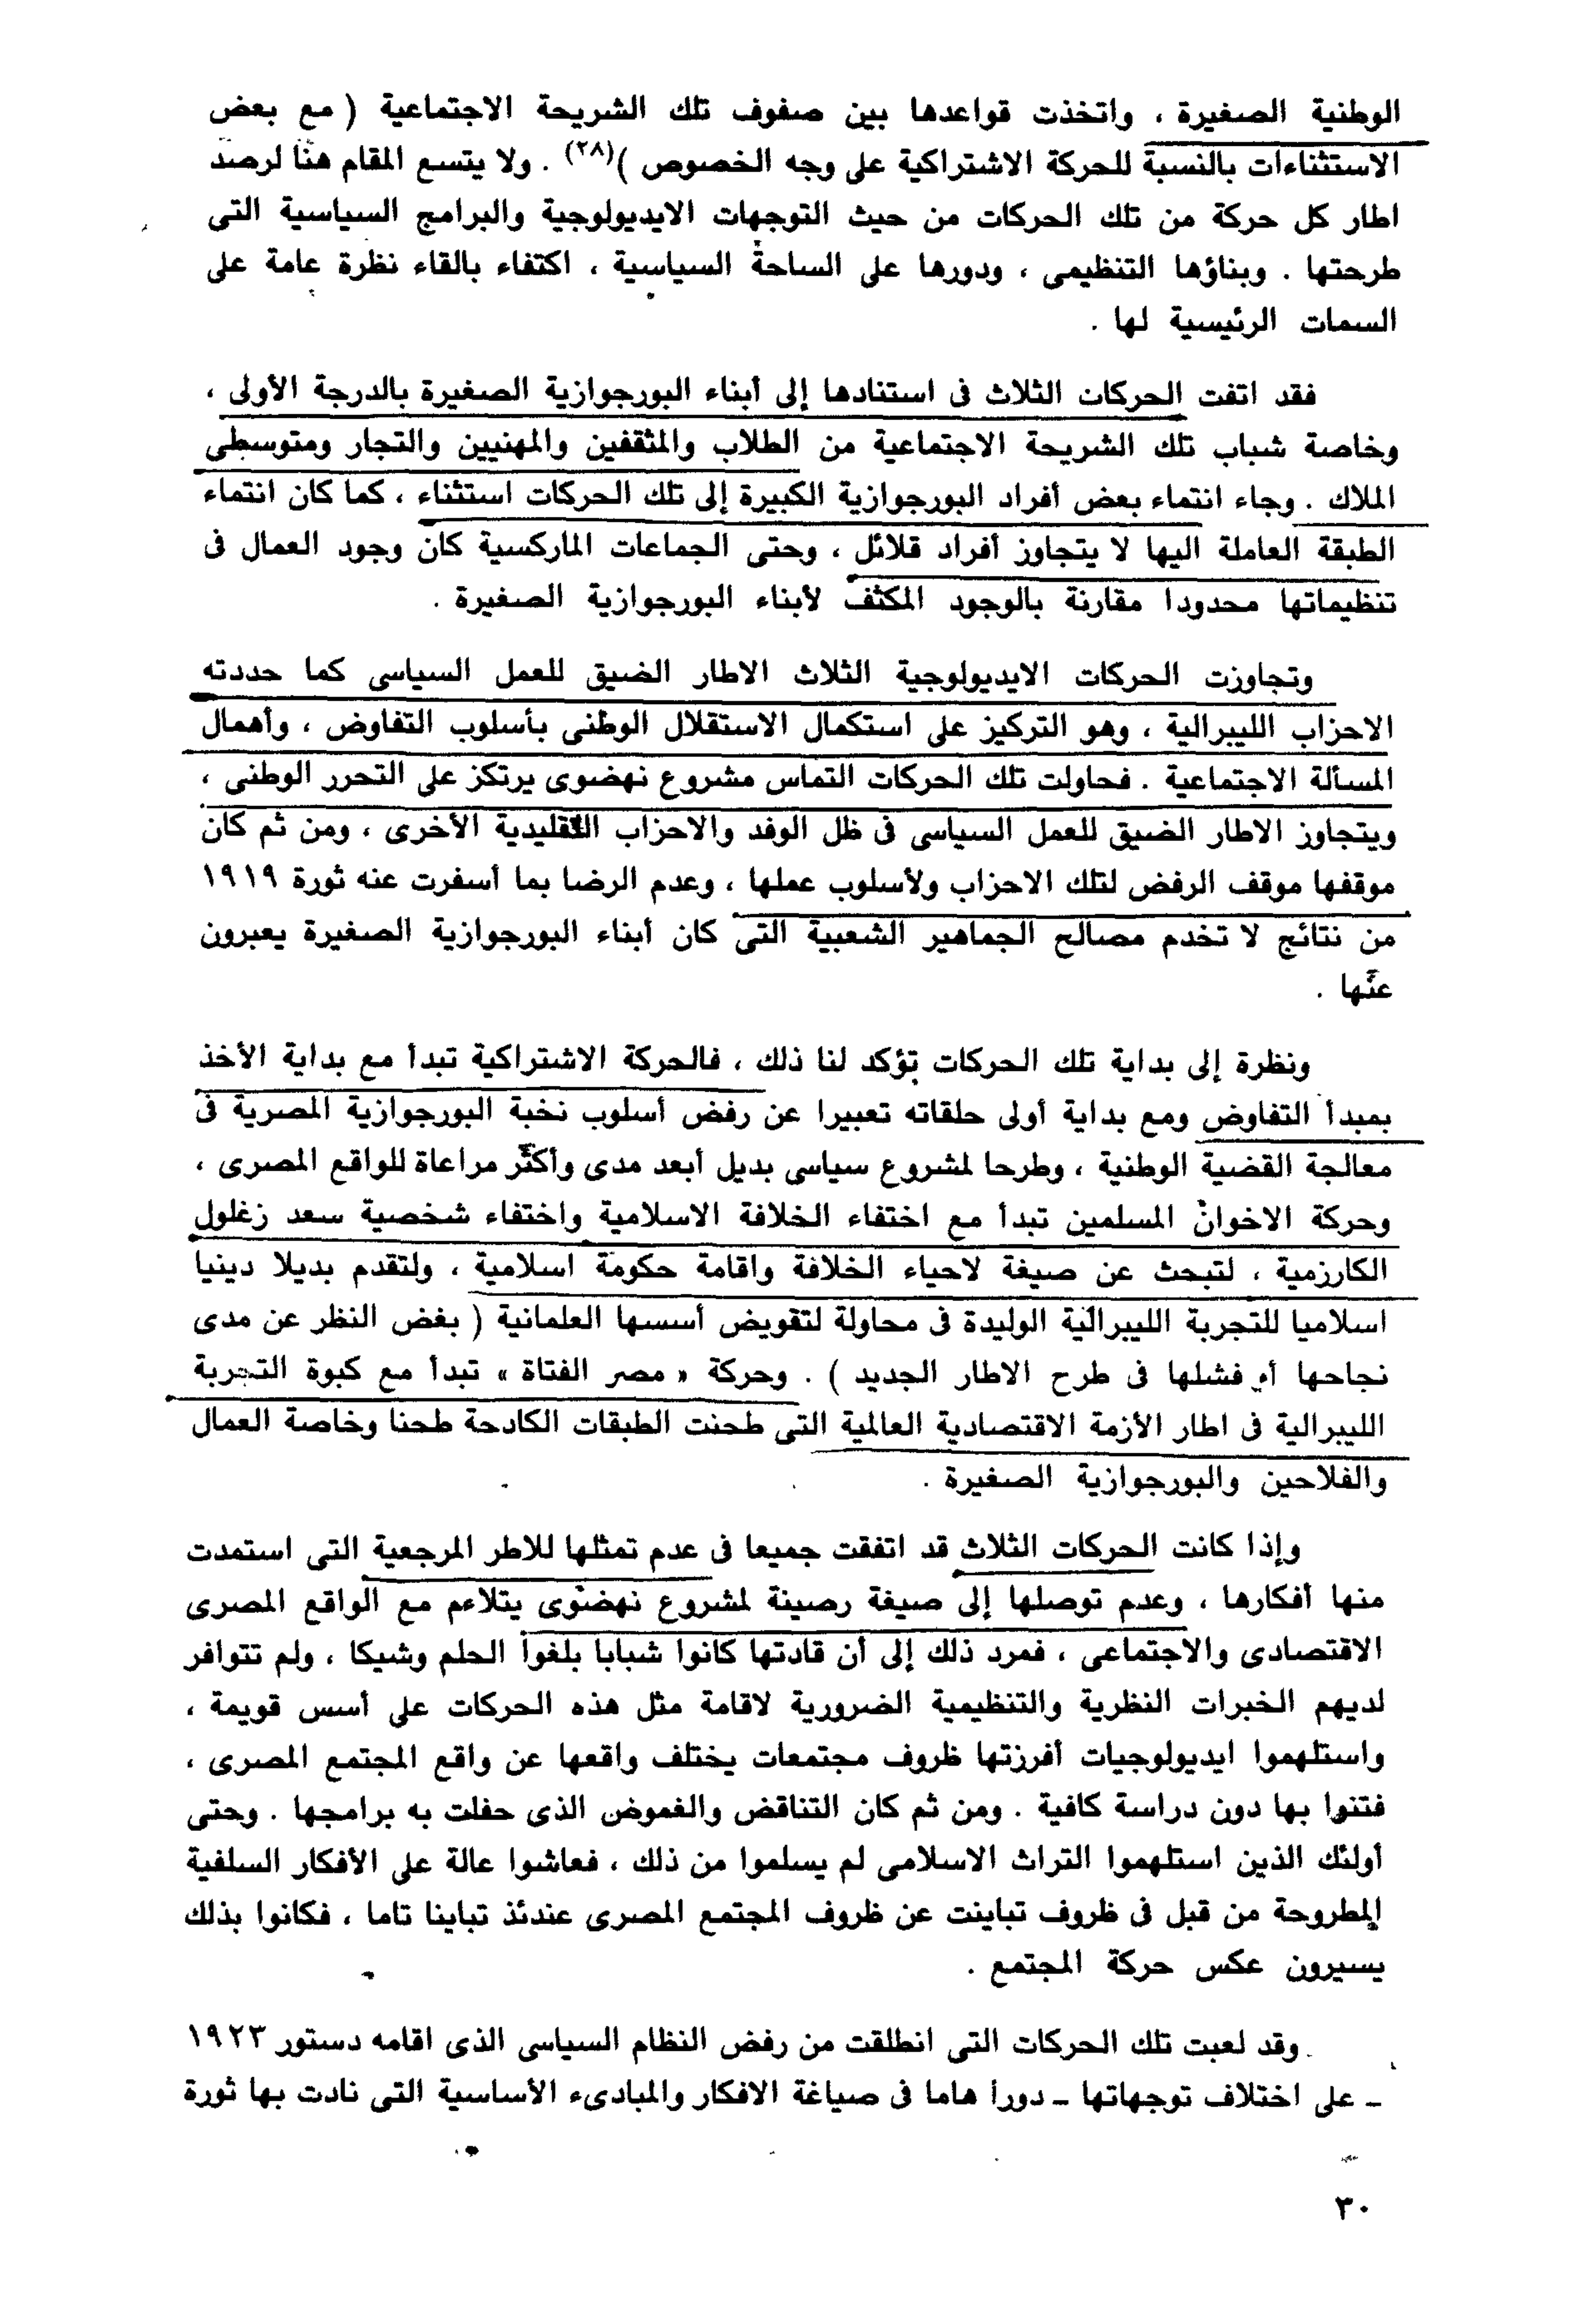 الوطنية الصغيرة ، واتخذت قواعدها بين صفوف تلك الشريحة الاجتماعية ( مع بعض
الاستثناءات بالنسبة للحركة الاشتراكية على وجه الخصوص )(٢٨) . ولا يتسع المقام هنا لرصد
اطار كل حركة من تلك الحركات من حيث التوجهات الايديولوجية والبرامج السياسية التى
طرحتها . وبناؤها التنظيمى ، ودورها على الساحة السياسية ، اكتفاء بالقاء نظرة عامة على
السمات الرئيسية لها .
فقد اتفت الحركات الثلاث فى استنادها إلى أبناء البورجوازية الصغيرة بالدرجة الأولى ،
وخاصة شباب تلك الشريحة الاجتماعية من الطلاب والمثقفين والمهنيين والتجار ومتوسطى
الملاك . وجاء انتماء بعض أفراد البورجوازية الكبيرة إلى تلك الحركات استثناء ، كما كان انتماء
الطبقة العاملة اليها لا يتجاوز أفراد قلائل ، وحتى الجماعات الماركسية كان وجود العمال فى
تنظيماتها محدودا مقارنة بالوجود المكثف لأبناء البورجوازية الصغيرة .
وتجاوزت الحركات الايديولوجية الثلاث الاطار الضيق للعمل السياسى كما حددته
الاحزاب الليبرالية ، وهو التركيز على استكمال الاستقلال الوطنى بأسلوب التفاوض ، وأهمال
المسألة الاجتماعية . فحاولت تلك الحركات التماس مشروع نهضوى يرتكز على التحرر الوطنى ،
ويتجاوز الاطار الضيق للعمل السياسى فى ظل الوفد والاحزاب التقليدية الأخرى ، ومن ثم كان
موقفها موقف الرفض لتلك الاحزاب ولأسلوب عملها ، وعدم الرضا بما أسفرت عنه ثورة ١٩١٩
من نتائج لا تخدم مصالح الجماهير الشعبية التى كان أبناء البورجوازية الصغيرة يعبرون
عنها .
ونظرة إلى بداية تلك الحركات تؤكد لنا ذلك ، فالحركة الاشتراكية تبدأ مع بداية الأخذ
بمبدأ التفاوض ومع بداية أولى حلقاته تعبيرا عن رفض أسلوب نخبة البورجوازية المصرية فى
معالجة القضية الوطنية ، وطرحا لمشروع سياسى بديل أبعد مدى وأكثر مراعاة للواقع المصرى ،
وحركة الاخوان المسلمين تبدأ مع اختفاء الخلافة الاسلامية واختفاء شخصية سعد زغلول
الكارزمية ، لتبحث عن صيغة لاحياء الخلافة واقامة حكومة اسلامية ، ولتقدم بديلا دينيا
اسلاميا للتجربة الليبرالية الوليدة فى محاولة لتقويض أسسها العلمانية ( بغض النظر عن مدى
نجاحها أم فشلها فى طرح الاطار الجديد ) . وحركة « مصر الفتاة » تبدأ مع كبوة التجربة
الليبرالية فى اطار الأزمة الاقتصادية العالمية التى طحنت الطبقات الكادحة طحنا وخاصة العمال
والفلاحين والبورجوازية الصغيرة .
وإذا كانت الحركات الثلاث قد اتفقت جميعا فى عدم تمثلها للاطر المرجعية التى استمدت
منها أفكارها ، وعدم توصلها إلى صيغة رصينة لمشروع نهضوى يتلاءم مع الواقع المصرى
الاقتصادى والاجتماعى ، فمرد ذلك إلى أن قادتها كانوا شبابا بلغوا الحلم وشيكا ، ولم تتوافر
لديهم الخبرات النظرية والتنظيمية الضرورية لاقامة مثل هذه الحركات على أسس قويمة ،
واستلهموا ايديولوجيات أفرزتها ظروف مجتمعات يختلف واقعها عن واقع المجتمع المصرى ،
فتنوا بها دون دراسة كافية . ومن ثم كان التناقض والغموض الذى حفلت به برامجها . وحتى
أولئك الذين استلهموا التراث الاسلامى لم يسلموا من ذلك ، فعاشوا عالة على الأفكار السلفية
المطروحة من قبل فى ظروف تباينت عن ظروف المجتمع المصرى عندئذ تباينا تاما ، فكانوا بذلك
يسيرون عكس حركة المجتمع .
وقد لعبت تلك الحركات التى انطلقت من رفض النظام السياسى الذى اقامه دستور ١٩٢٣
ـ على اختلاف توجهاتها ـ دورا هاما فى صياغة الافكار والمبادىء الأساسية التى نادت بها ثورة
٣٠